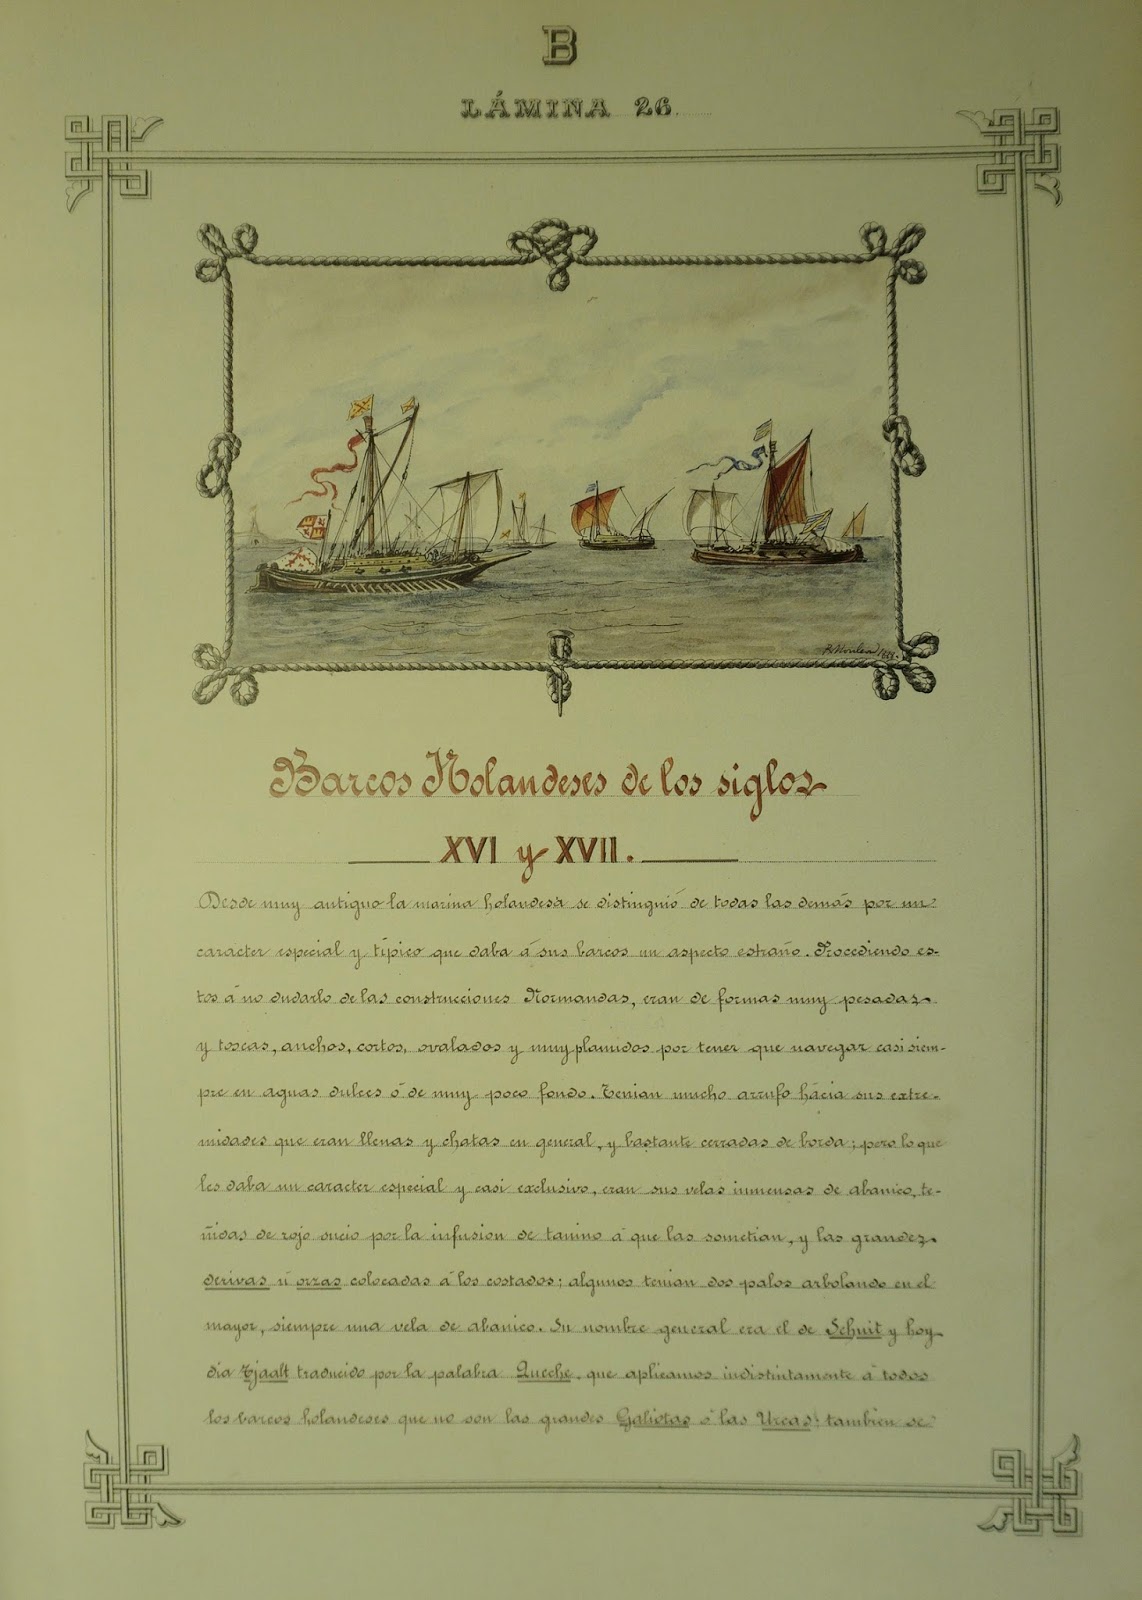 B
LÁMINA 26.
R. Monleon 1888.
Barcos Holandeses de los siglos
XVI y XVII.
Desde muy antiguo la marina holandesa se distinguió de todas las demás por un
caracter especial y típico que daba á sus barcos un aspecto estraño. Procediendo es-
tos á no dudarlo de las construcciones Normandas, eran de formas muy pesadas
y toscas, anchos, cortos, ovalados y muy planudos por tener que navegar casi siem-
pre en aguas dulces ó de muy poco fondo. Tenian mucho arrufo hácia sus extre-
midades que eran llenas y chatas en general, y bastante cerradas de borda; pero lo que
les daba un caracter especial y casi exclusivo, eran sus velas inmensas de abanico, te-
ñidas de rojo sucio por la infusion de tanino á que las sometian, y las grandes
derivas ú orzas colocadas á los costados; algunos tenian dos palos arbolando en el
mayor, siempre una vela de abanico. Su nombre general era el de Schuit y hoy
dia Tjaalt traducido por la palabra Queche, que aplicamos indistintamente á todos
los barcos holandeses que no son las grandes Galiotas ó las Urcas; tambien se